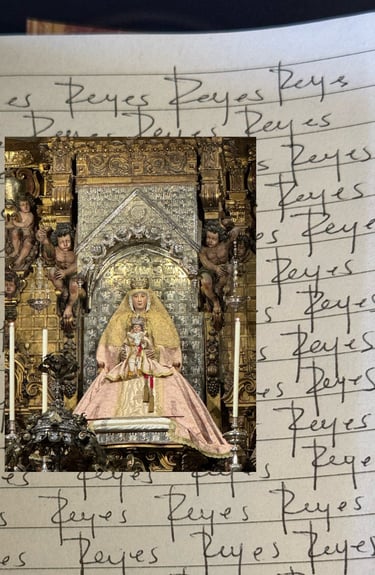 es Reyes Reyes Reyes
Reyes Reyes Reyes
Reyes
Reyes
es Reyes
Reyes
es Reyes
s Reyes
es Reyes
Reyes
Reye
s Reyes Reyes Reyes
es Reyes Reyes Reyes